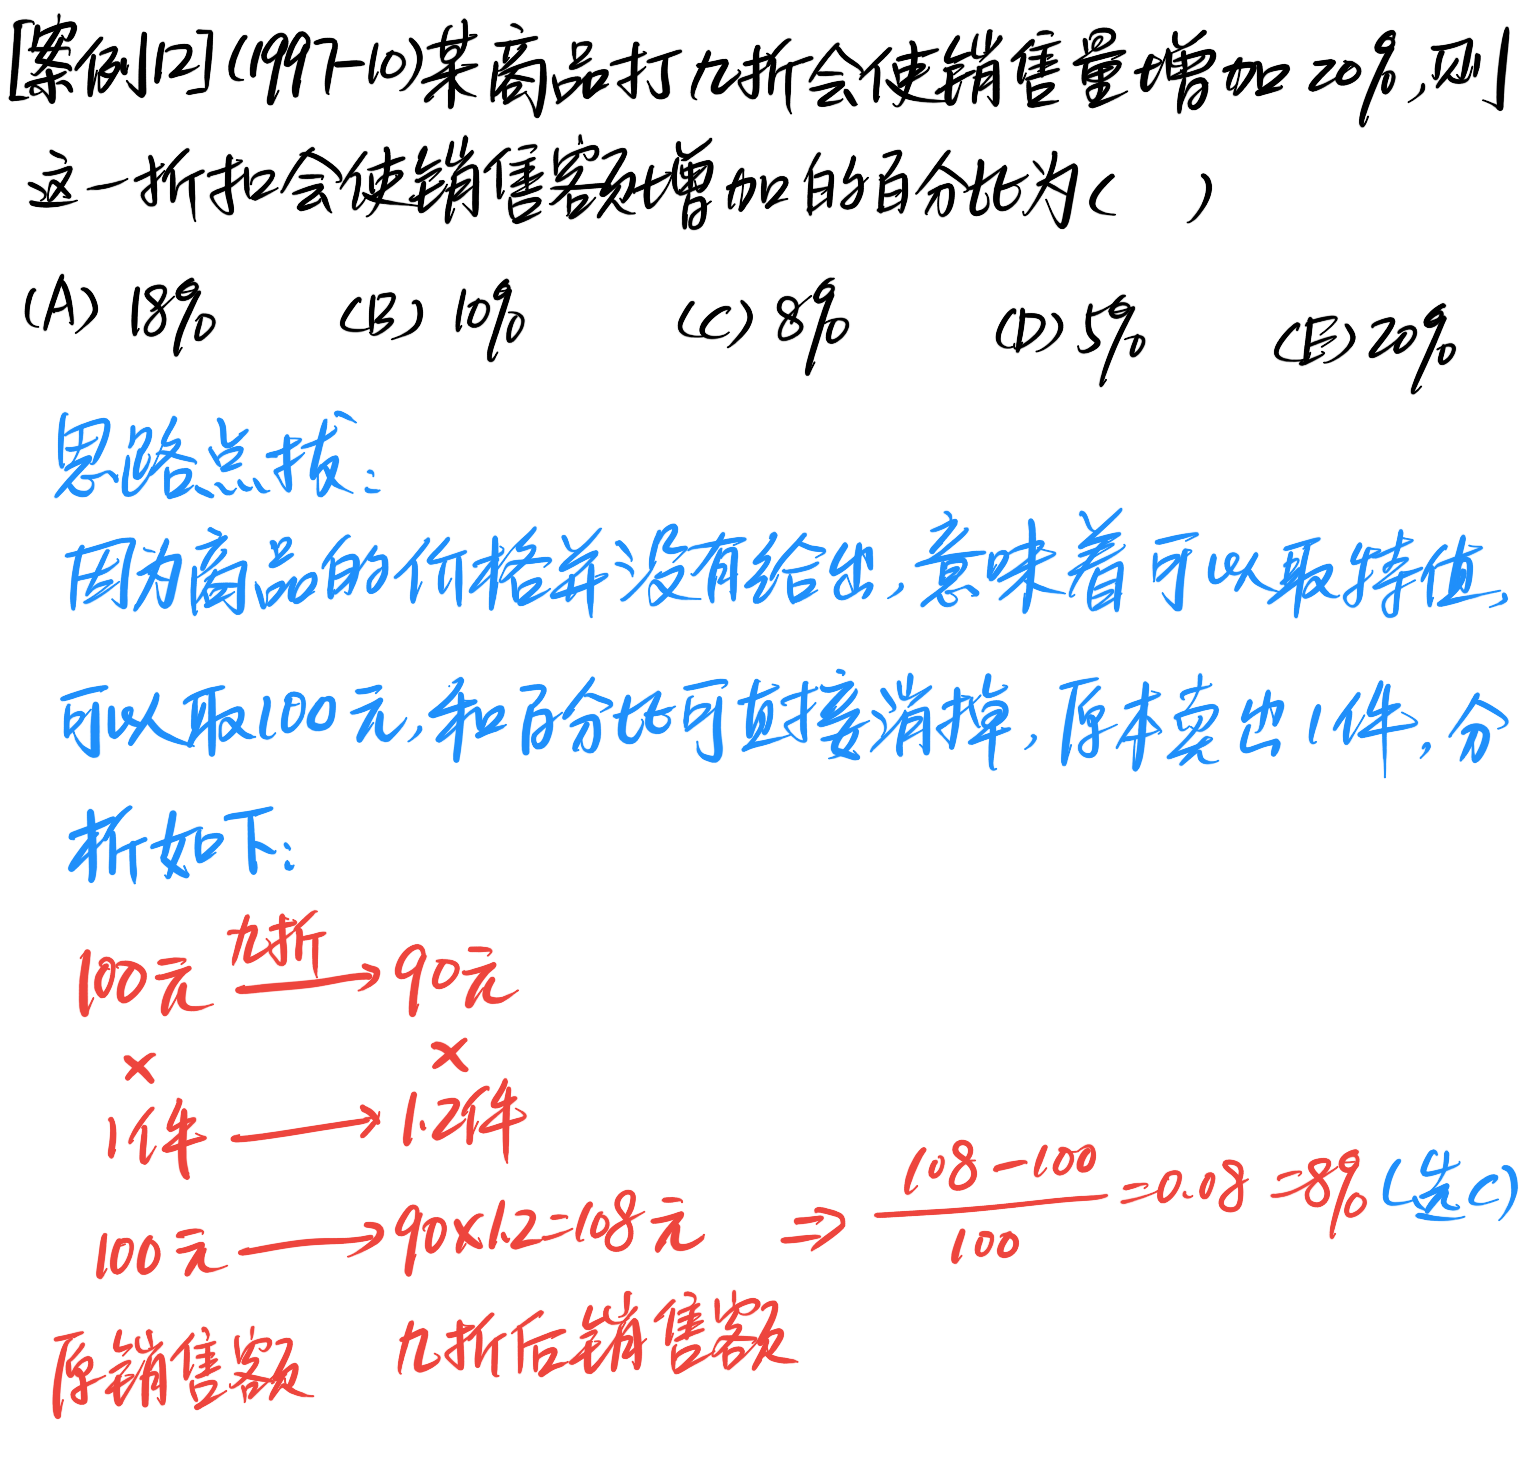 [案例12](1997-10)某商品打九折会使销售量增加20%,则
这一折扣会使销售额增加的百分比为( )
(A) 18% (B) 10% (C) 8% (D) 5% (E) 20%
思路点拔:
因为商品的价格并没有给出,意味着可以取特值,
可以取100元,和百分比可直接消掉,原本卖出1件,分
析如下:
九折
100元 → 90元
× ×
1件 → 1.2件
100元 → 90×1.2=108元 ⇒ (108-100)/100 =0.08 =8% (选C)
原销售额 九折后销售额